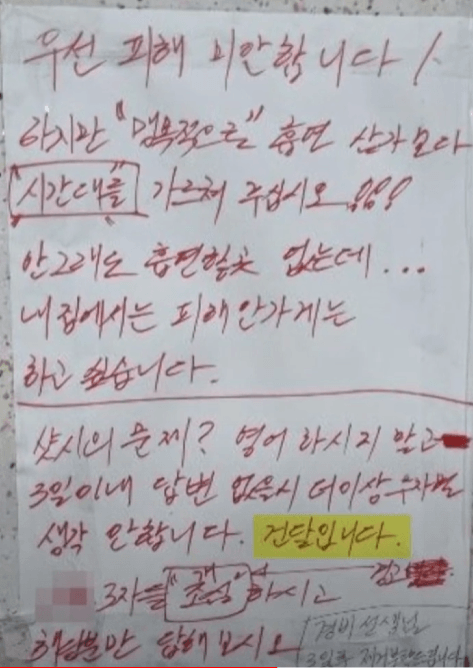 우선 피해 미안합니다!
하지만 "맹목적으로" 흡연 삼가보다
"시간대를" 가르쳐 주십시오 !!!
안그래도 흡연할곳 없는데...
내집에서는 피해안가게는
하고 싶습니다.
샷시의 문제? 영어 하시지 말고
3일이내 답변 없을시 더이상
생각 안합니다. 건달입니다.
경고
3자를 하시고
해당분만 답해보시오
경비 선생님
3일후